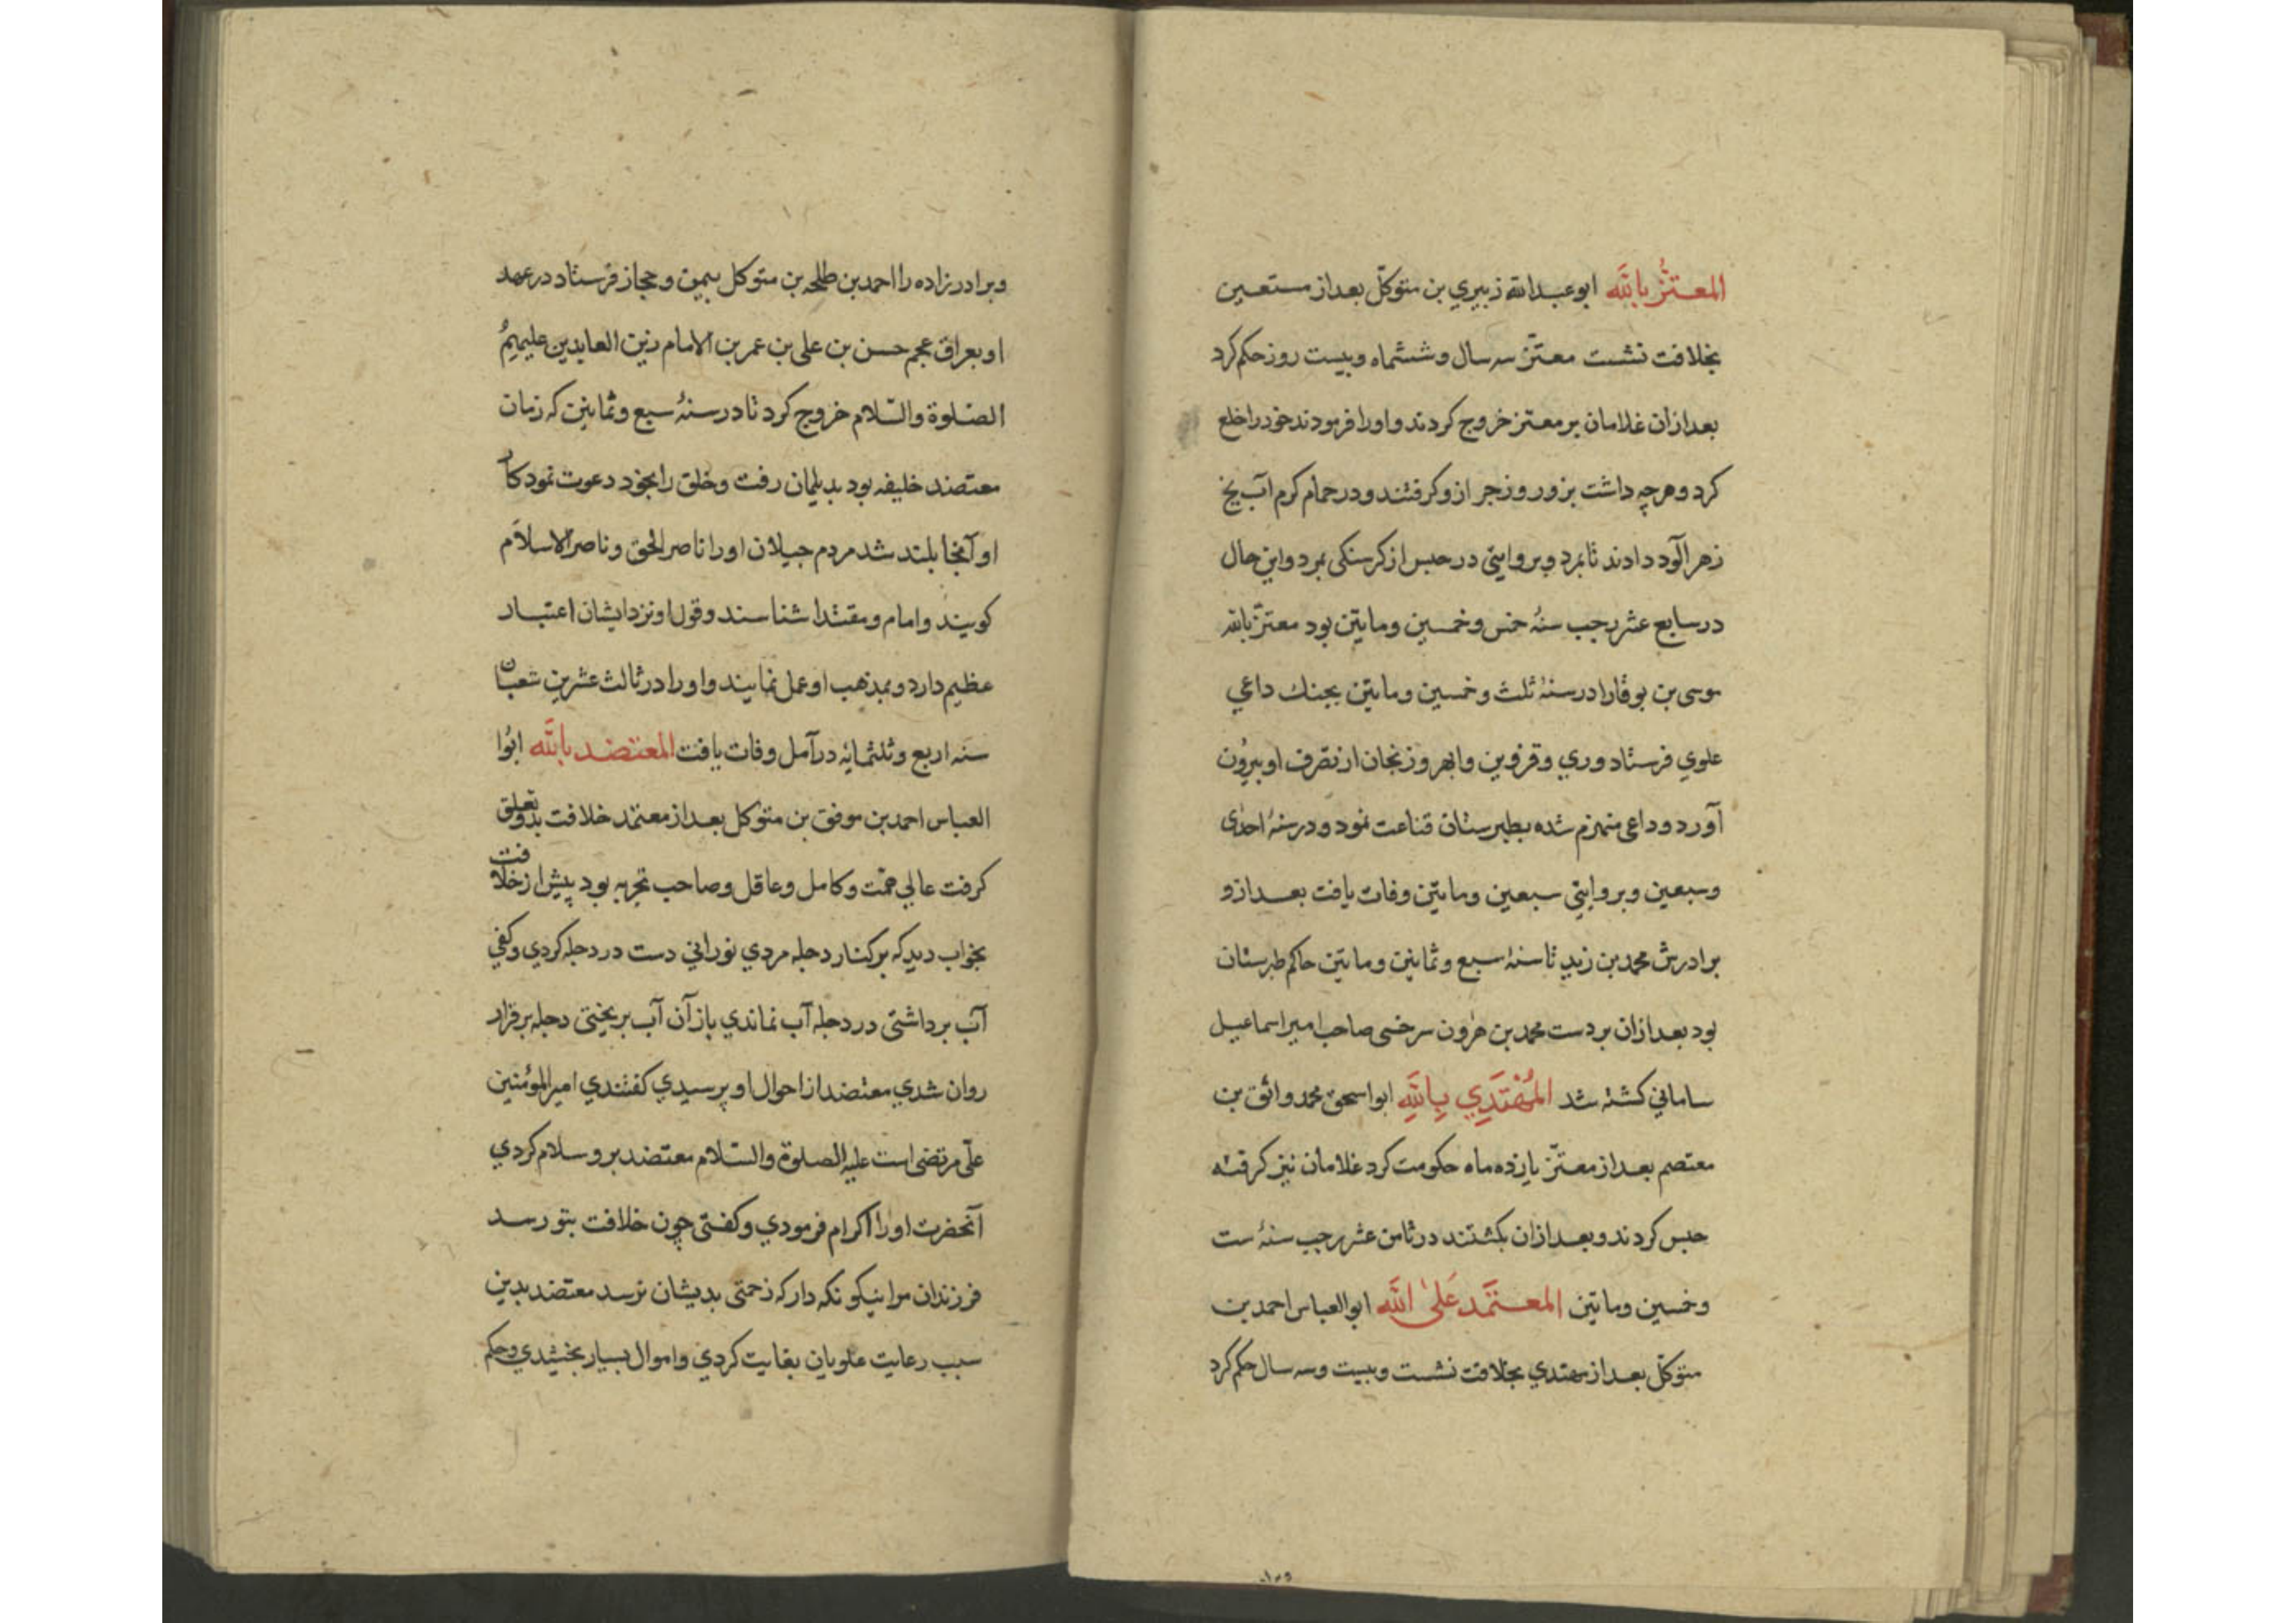 المعتزّ بالله ابوعبدالله زبيري بن متوكّل بعداز مستعين
بخلافت نشست معتزّ سه سال وششماه وبيست روز حكم كرد
بعدازان غلامان برمعتز خروج كردند و اورا فرمودند خودرا خلع
كرد وهرچه داشت بزور وزجر ازو كرفتند ودر حمام كرم آب يخ
زهرآلود دادند تا بمرد وبروايتي در حبس از كرسنكى بمرد واين حال
در سابع عشر رجب سنهٔ خمس وخمسين ومايتين بود معتزّ بالله
موسى بن بوقارا در سنهٔ ثلث وخمسين ومايتين بجنك داعي
علوي فرستاد وري وقزوين وابهر وزنجان از تصرف او بيرون
آورد وداعى منهزم شده بطبرستان قناعت نمود ودر سنهٔ احدى
وسبعين وبروايتي سبعين ومايتين وفات يافت بعد ازو
برادرش محمد بن زيد تا سنهٔ سبع وثمانين ومايتين حاكم طبرستان
بود بعدازان بردست محمد بن هرون سرخسى صاحب امير اسماعيل
ساماني كشته شد المُهْتَدِي بِاللهِ ابواسحق محمد واثق بن
معتصم بعداز معتزّ يازده ماه حكومت كرد غلامان نيز كرفته
حبس كردند وبعدازان بكشتند در ثامن عشر رجب سنهٔ ست
وخمسين ومايتين المعتمَد عَلىٰ الله ابوالعباس احمد بن
متوكّل بعداز مهتدي بخلافت نشست وبيست وسه سال حكم كرد
وبرادرزاده را احمد بن طلحه بن متوكل بيمن وحجاز فرستاد درعهد
او بعراق عجم حسن بن على بن عمر بن الامام زين العابدين عليهم
الصلوة والسّلام خروج كرد تا در سنهٔ سبع وثمانين كه زمان
معتضد خليفه بود بديلمان رفت وخلق را بخود دعوت نمود كار
او آنجا بلند شد مردم جيلان اورا ناصر الحق وناصر الاسلام
كويند وامام ومقتدا شناسند وقول او نزد ايشان اعتبار
عظيم دارد وبمذهب او عمل نمايند واورا در ثالث عشرين شعبان
سنه اربع وثلثمايه در آمل وفات يافت المعتضد بالله ابوا
العباس احمد بن موفق بن متوكل بعداز معتمد خلافت بدو تعلق
كرفت عالي همّت وكامل وعاقل وصاحب تجربه بود پيش از خلافت
بخواب ديد كه بركنار دجله مردي نوراني دست در دجله كردي وكفي
آب برداشتى در دجله آب نماندي باز آن آب بريختى دجله برقرار
روان شدي معتضد از احوال او پرسيدي كفتندي اميرالمؤمنين
علىّ مرتضى است عليه الصلوة والسّلام معتضد برو سلام كردي
آنحضرت اورا اكرام فرمودي وكفتى چون خلافت بتو رسد
فرزندان مرا نيكو نكه دار كه زحمتى بديشان نرسد معتضد بدين
سبب رعايت علويان بغايت كردي واموال بسيار بخشيدي وحكم